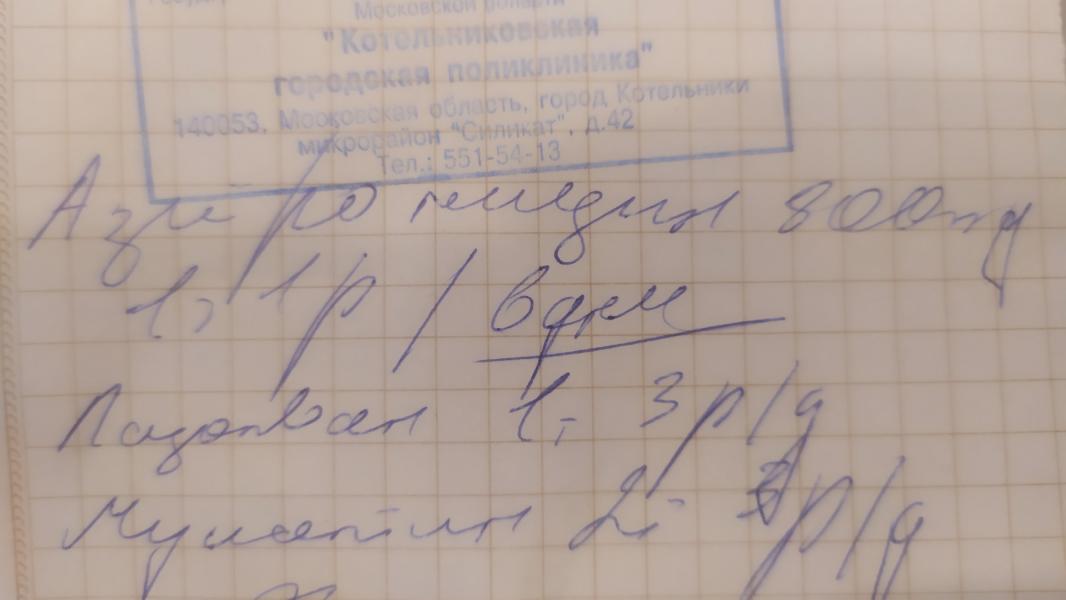 Московской области
"Котельниковская
городская поликлиника"
140053, Московская область, город Котельники
микрорайон "Силикат", д.42
Тел.: 551-54-13
Азитромицин 800mg
1т 1р / вдень
Лазолван 1т 3р/д
Мукалтин 2т р/д